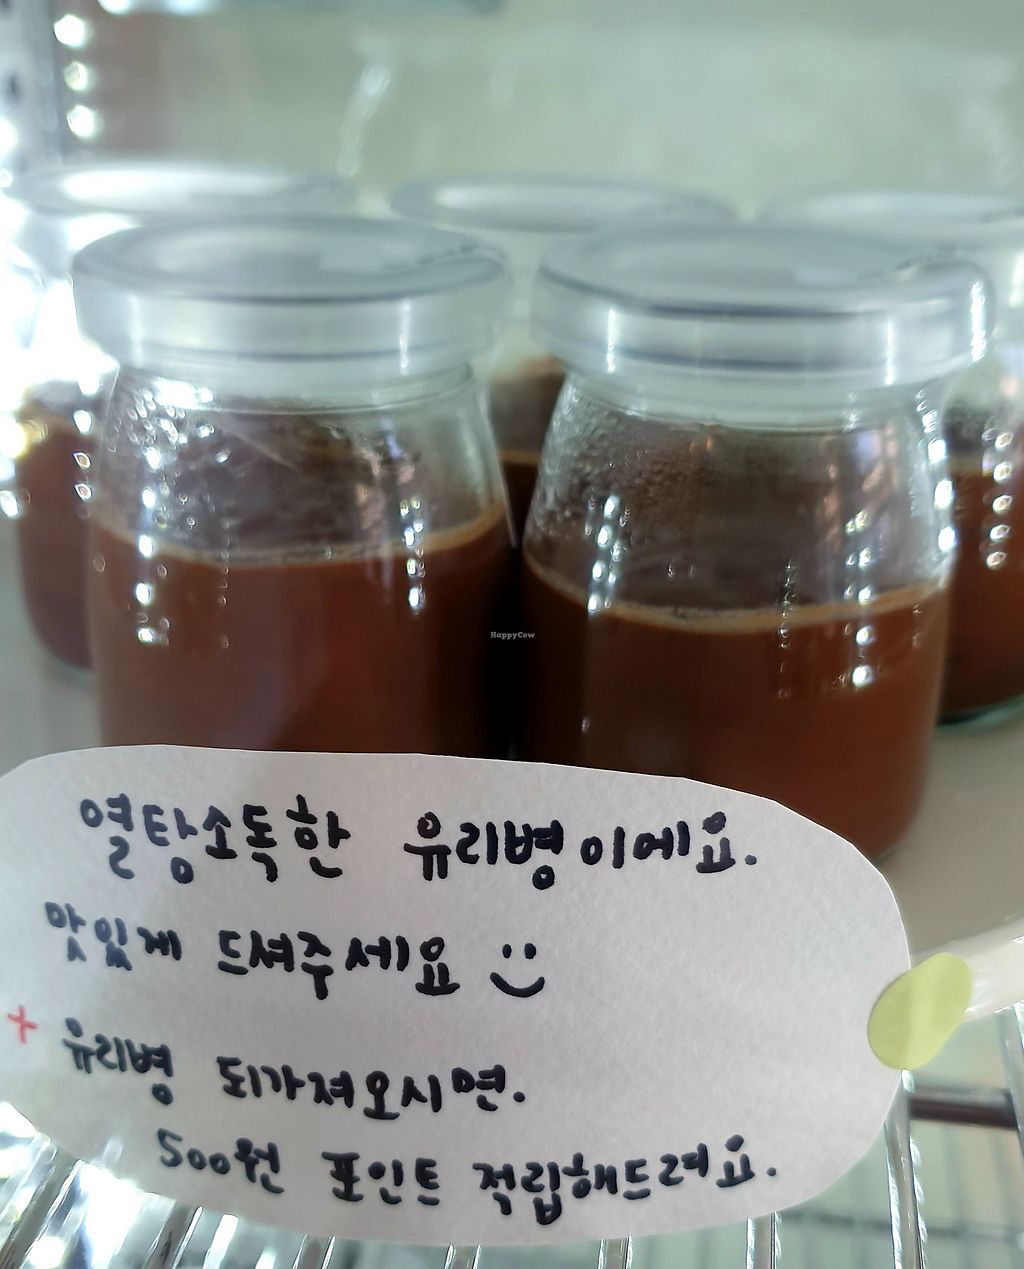 HappyCow
열탕소독한 유리병이에요.
맛있게 드셔주세요
+ 유리병 되가져오시면.
500원 포인트 적립해드려요.